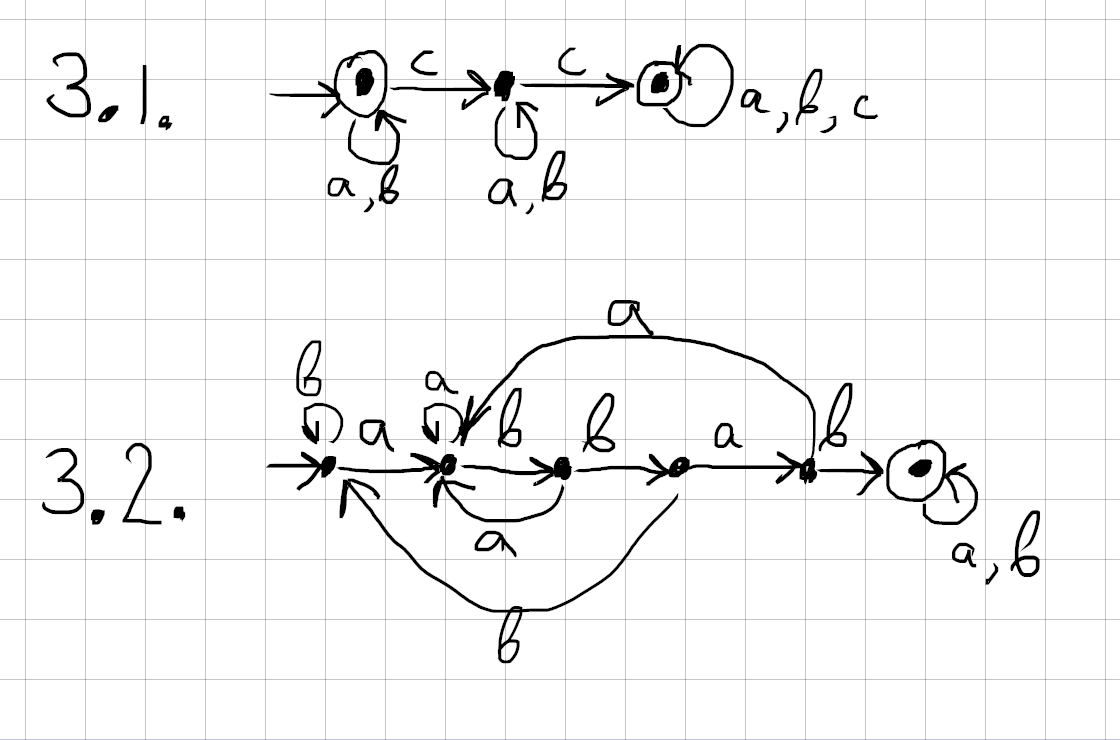 3.1.
c c
a, b, c
a, b a, b
a
b a
a b b a b
3.2.
a
a, b
b